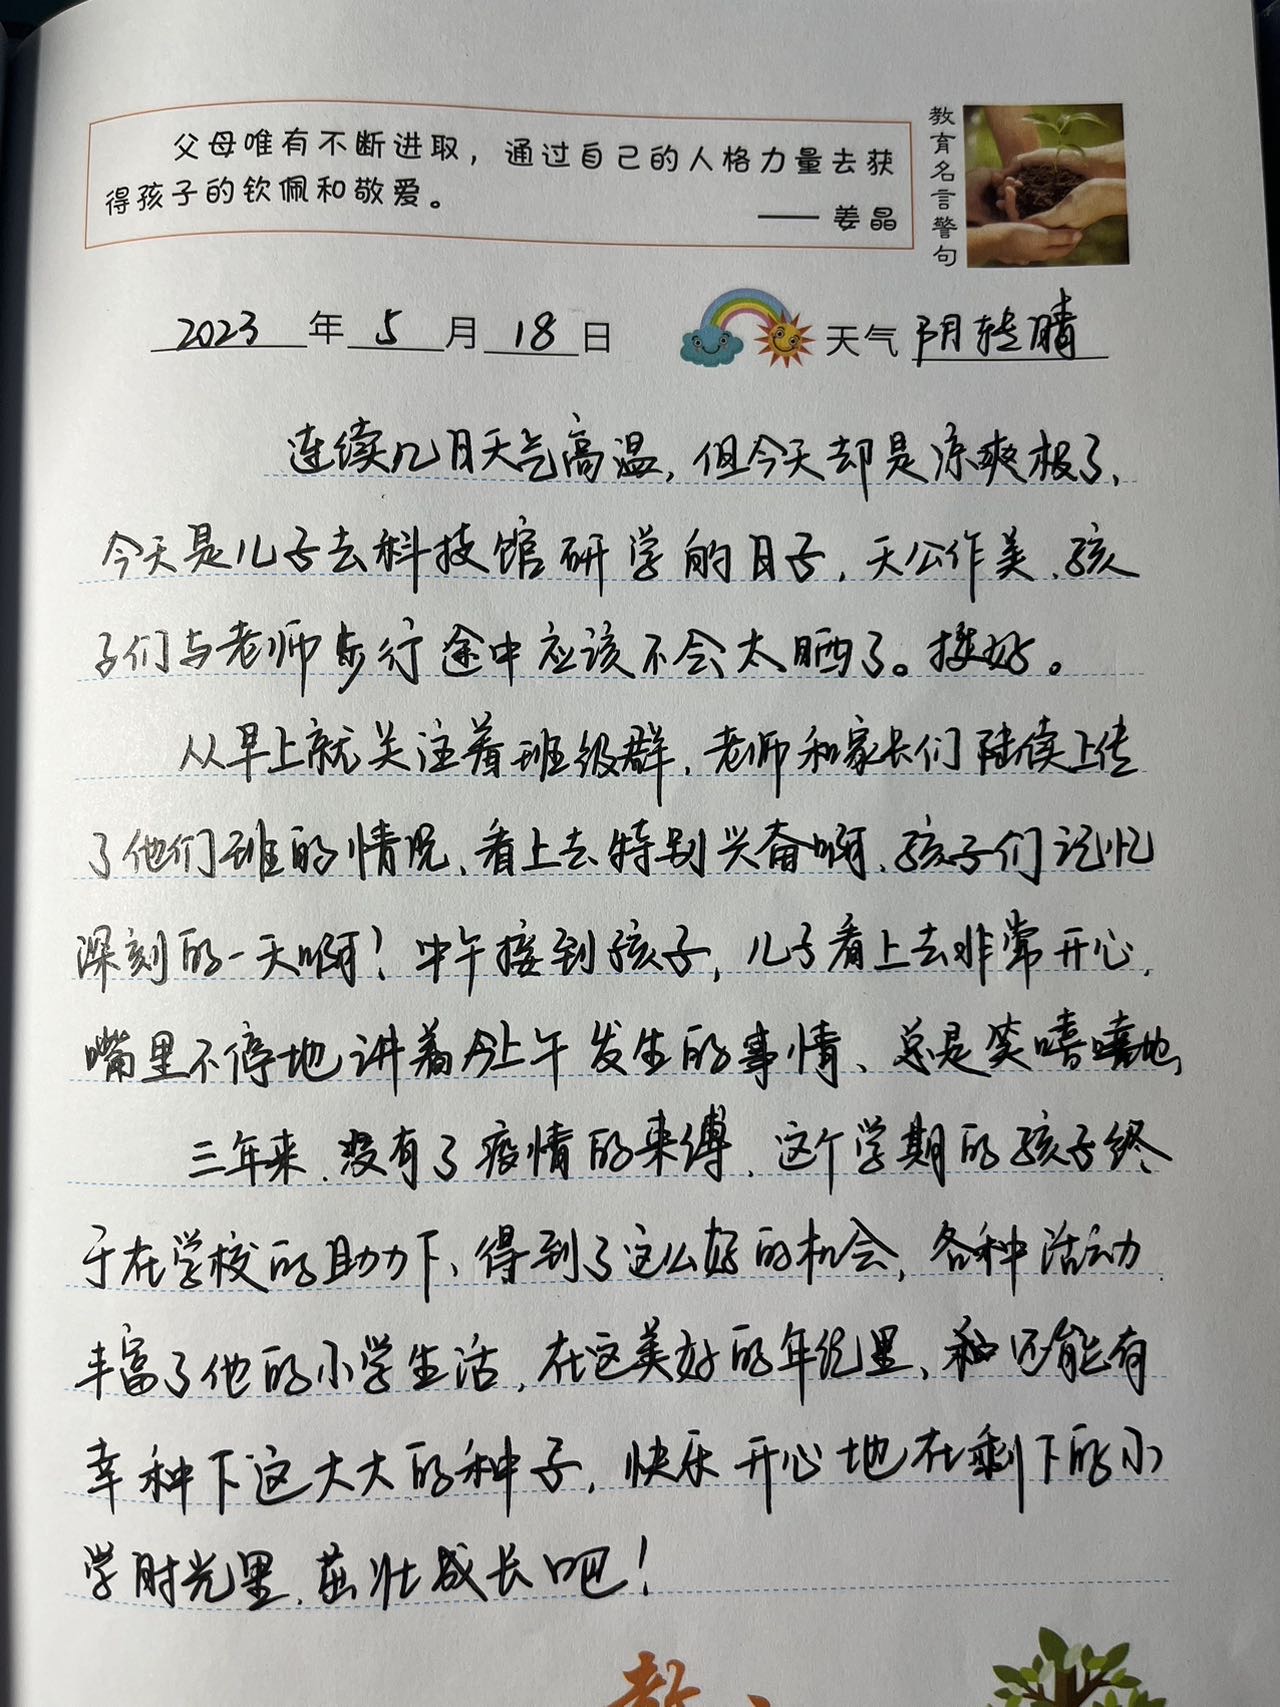 父母唯有不断进取，通过自己的人格力量去获
得孩子的钦佩和敬爱。
—— 姜晶
教育名言警句
2023年5月18日 天气 阴转晴
连续几日天气高温，但今天却是凉爽极了，
今天是儿子去科技馆研学的日子，天公作美，孩
子们与老师步行途中应该不会太晒了。挺好。
从早上就关注着班级群，老师和家长们陆续上传
了他们班的情况，看上去特别兴奋啊，孩子们记忆
深刻的一天啊！中午接到孩子，儿子看上去非常开心，
嘴里不停地讲着今上午发生的事情、总是笑嘻嘻地，
三年来，没有了疫情的束缚，这个学期的孩子终
于在学校的助力下，得到了这么好的机会，各种活动
丰富了他的小学生活，在这美好的年纪里，还能有
幸种下这大大的种子，快乐开心地在剩下的小
学时光里，茁壮成长吧！